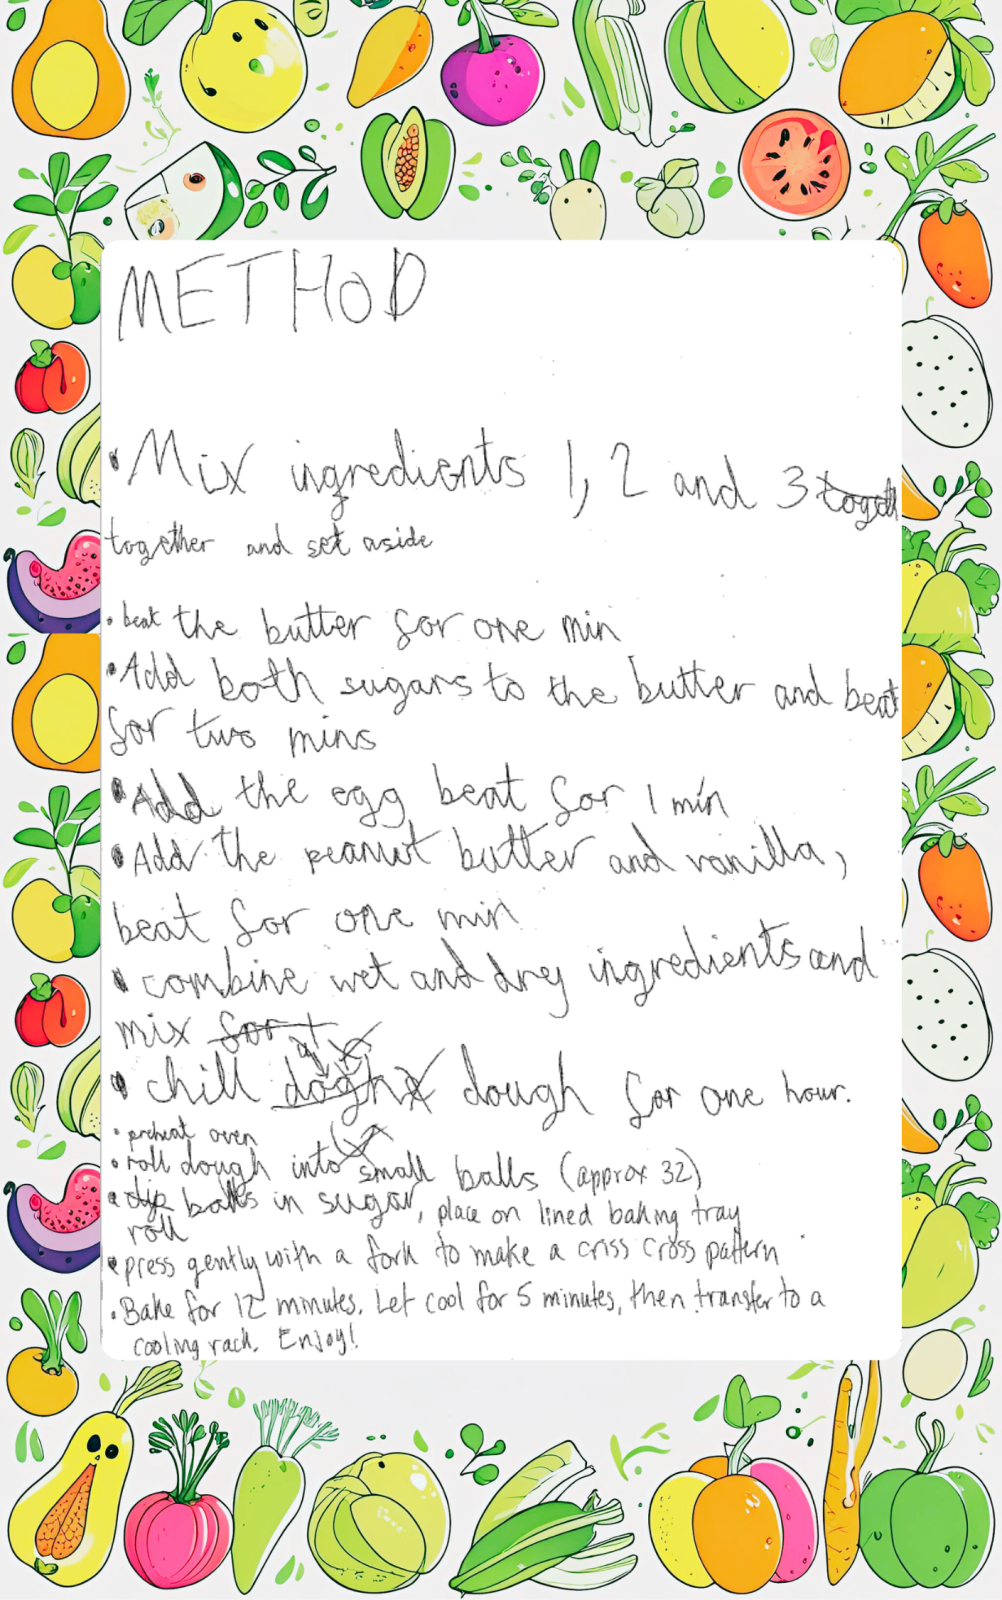 METHOD
• Mix ingredients 1, 2 and 3 togeth
together and set aside
• beat the butter for one min
• Add both sugars to the butter and beat
for two mins
• Add the egg beat for 1 min
• Add the peanut butter and vanilla,
beat for one min
• combine wet and dry ingredients and
mix for 1
• chill dough for one hour.
• preheat oven
• roll dough into small balls (approx 32)
• dip balls in sugar, place on lined baking tray
roll
• press gently with a fork to make a criss cross pattern
• Bake for 12 minutes. Let cool for 5 minutes, then transfer to a
cooling rack. Enjoy!